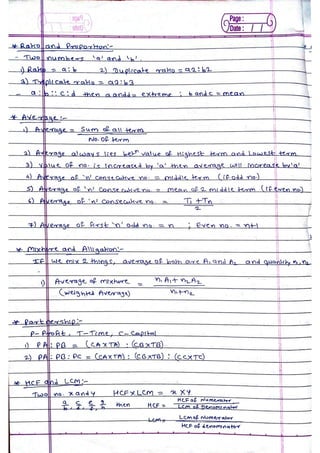 Page:
Date: / /
* Ratio and Proportion:-
- Two numbers 'a' and 'b'.
1) Ratio = a:b 2) Duplicate ratio = a2:b2
3) Triplicate ratio = a3:b3
- a:b::c:d then a and d = extreme ; b and c = mean
* Average:-
1) Average = Sum of all term
No. of term
2) Average always lies betn value of highest term and lowest term
3) value of no. is increased by 'a' then average will increase by 'a'
4) Average of 'n' consecutive no. = middle term (if odd no)
5) Average of 'n' consecutive no. = mean of 2 middle term (if even no)
6) Average of 'n' consecutive no. = T1 + Tn
2
7) Average of first 'n' odd no = n ; Even no. = n+1
* Mixture and Alligation:-
If we mix 2 things, average of both are A1 and A2 and quantity n1, n2
1) Average of mixture = n1A1 + n2A2
(Weighted Average) n1+n2
* Partnership:-
P- Profit, T- Time, C- Capital
1) PA:PB = (CAXTA) : (CBXTB)
2) PA:PB:PC = (CAXTA) : (CBXTB) : (CCXTC)
* HCF and LCM:-
Two no. x and y HCF x LCM = x X y
then HCF = HCF of Numerator
LCM of Denominator
LCM = LCM of Numerator
HCF of denominator